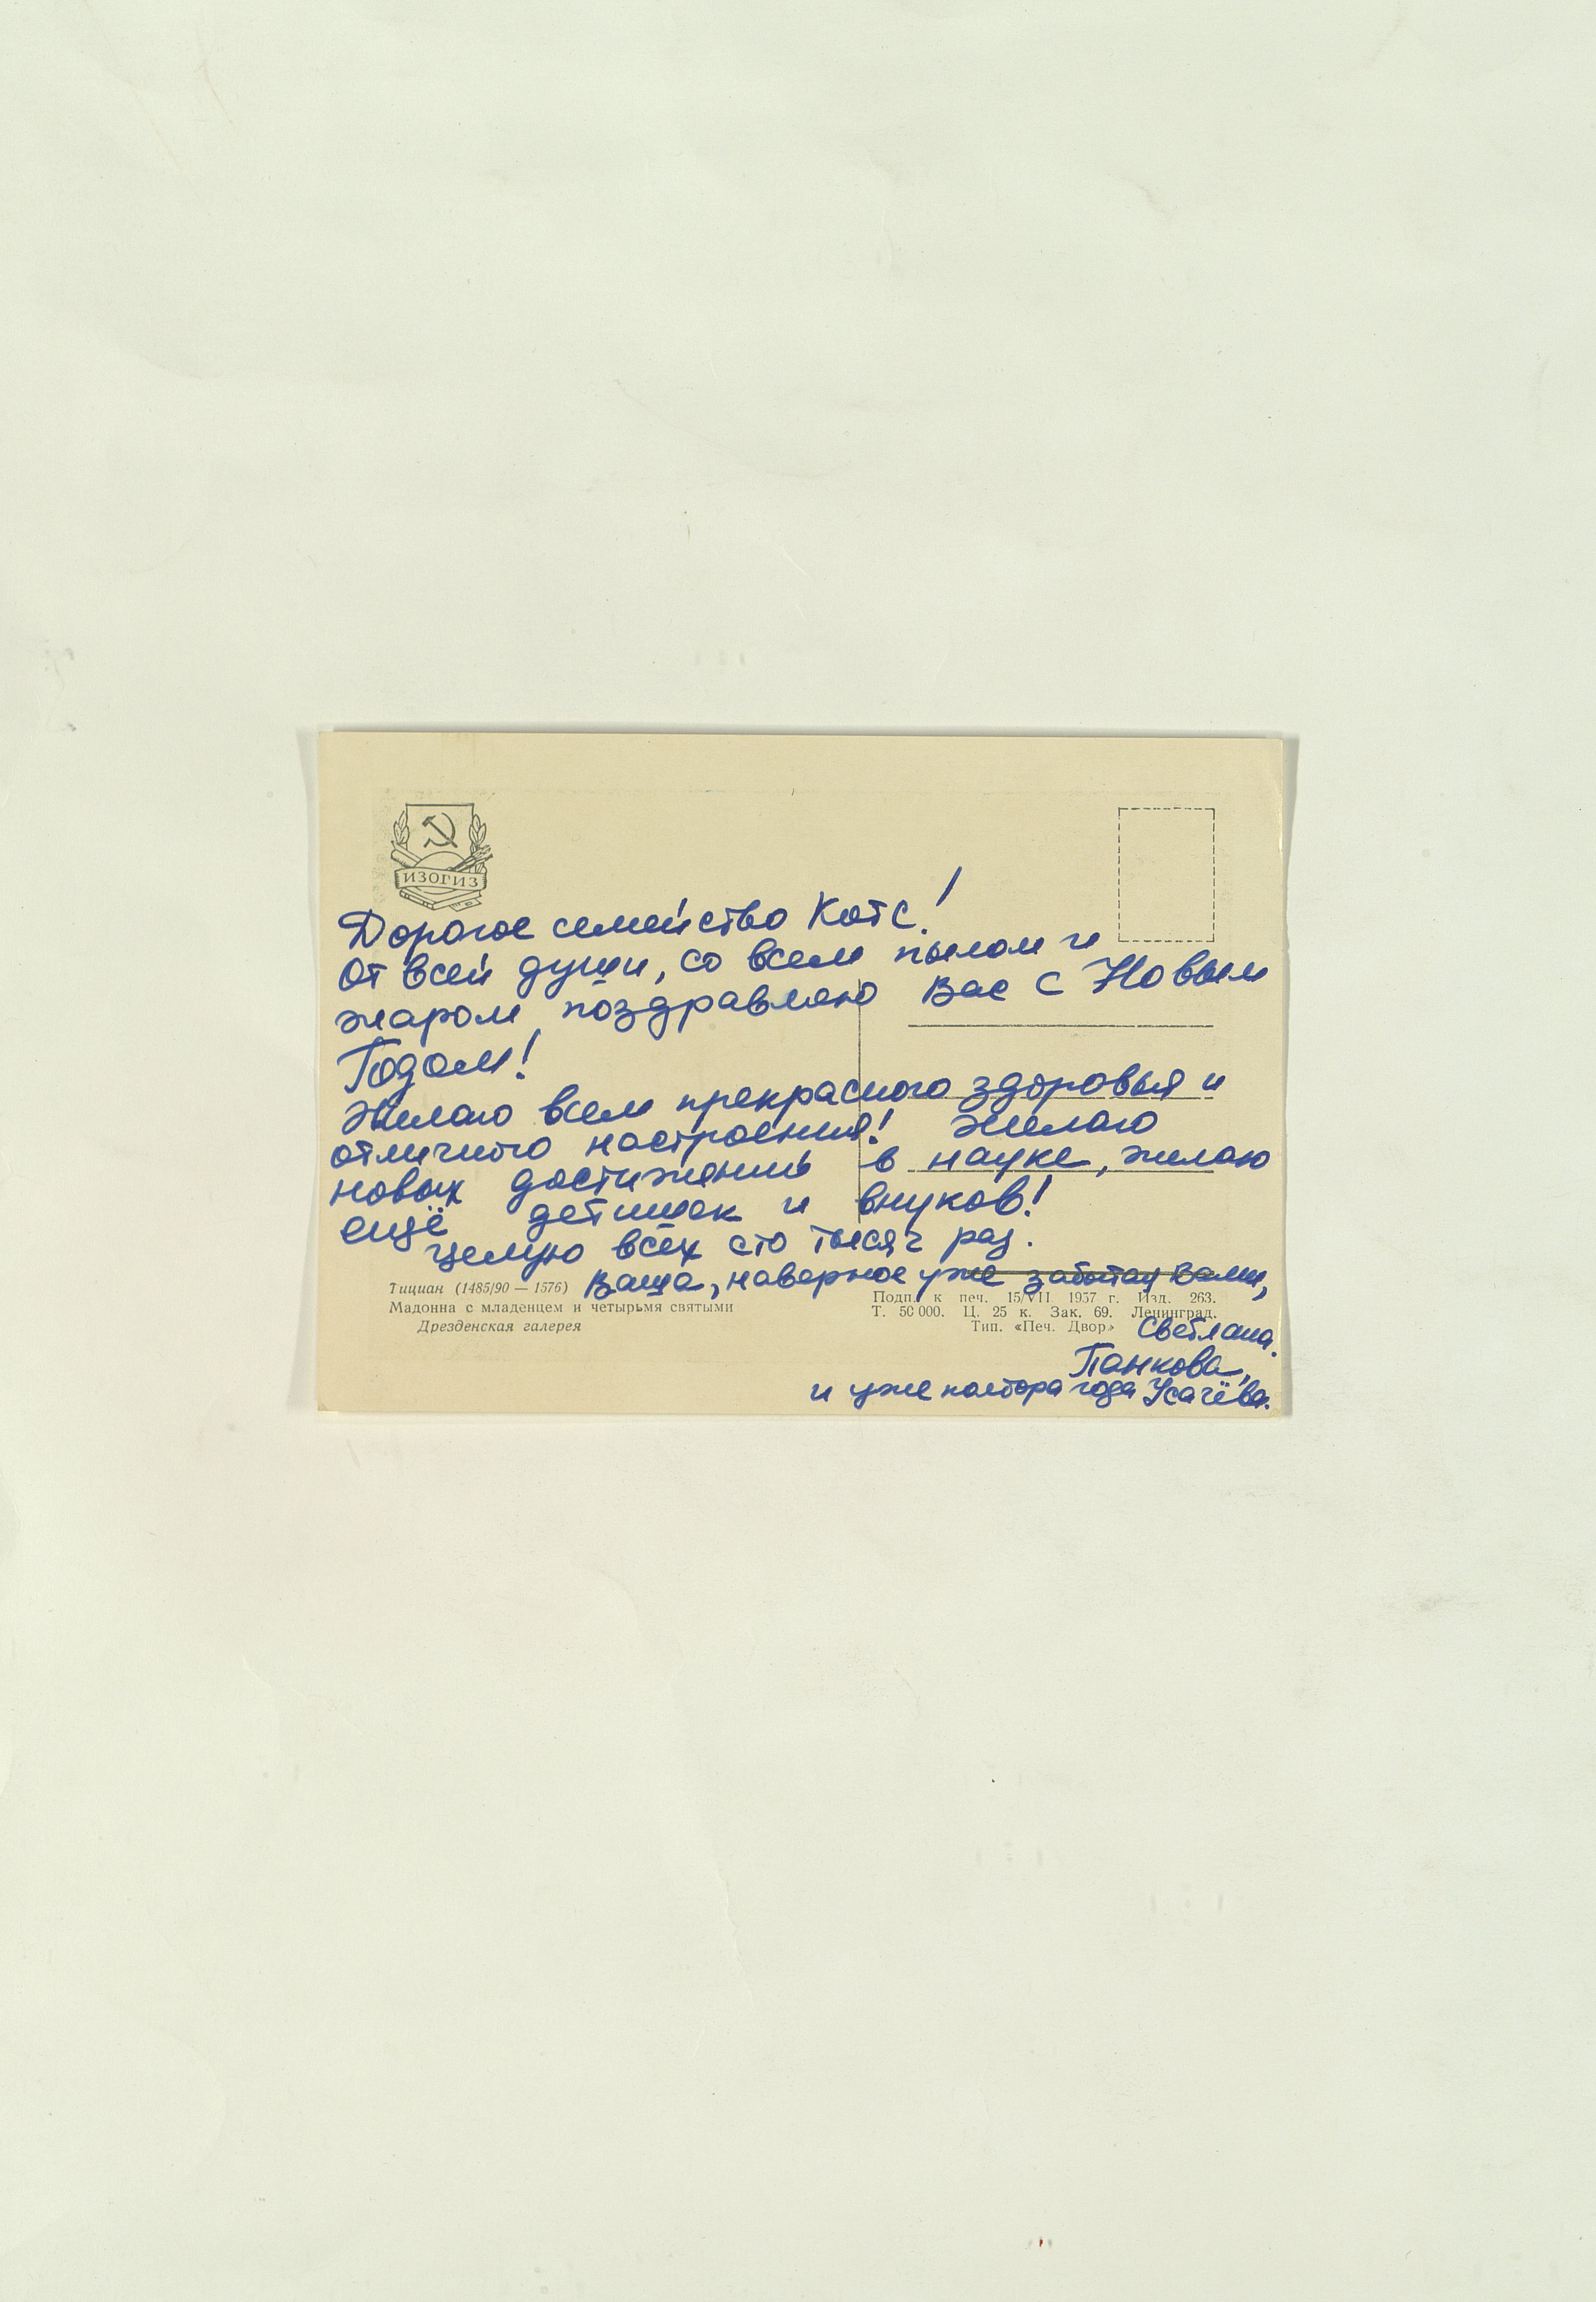 ИЗОГИЗ
Дорогое семейство Котс!
От всей души, со всем пылом и
жаром поздравляю Вас с Новым
Годом!
Желаю всем прекрасного здоровья и
отличного настроения! Желаю
новых достижений в науке, желаю
ещё детишек и внуков!
Целую всех сто тысяч раз.
Ваша, наверное уже забытая Вами,
Светлана.
Панкова,
и уже полтора года Усачёва.
Тициан (1485/90 — 1576)
Мадонна с младенцем и четырьмя святыми
Дрезденская галерея
Подп. к печ. 15/VII 1957 г. Изд. 263.
Т. 50 000. Ц. 25 к. Зак. 69. Ленинград.
Тип. «Печ. Двор»